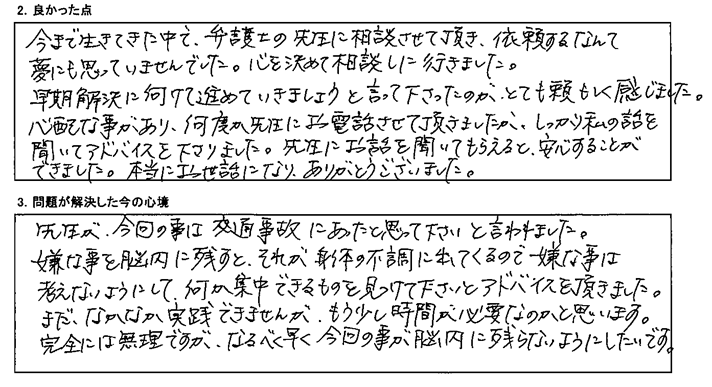 2. 良かった点
今まで生きてきた中で、弁護士の先生に相談させて頂き、依頼するなんて
夢にも思っていませんでした。心を決めて相談しに行きました。
早期解決に向けて進めていきましょうと言って下さったのが、とても頼もしく感じました。
心配な事があり、何度か先生にお電話させて頂きましたが、しっかり私の話を
聞いてアドバイスを下さりました。先生にお話を聞いてもらえると、安心することが
できました。本当にお世話になり、ありがとうございました。
3. 問題が解決した今の心境
先生が、今回の事は交通事故にあったと思って下さいと言われました。
嫌な事を脳内に残すと、それが身体の不調にれてくるので嫌な事は
考えないようにして、何か集中できるものを見つけて下さいとアドバイスを頂きました。
まだ、なかなか実践できませんが、もう少し時間が必要なのかと思います。
完全には無理ですが、なるべく早く今回の事が脳内に残らないようにしたいです。